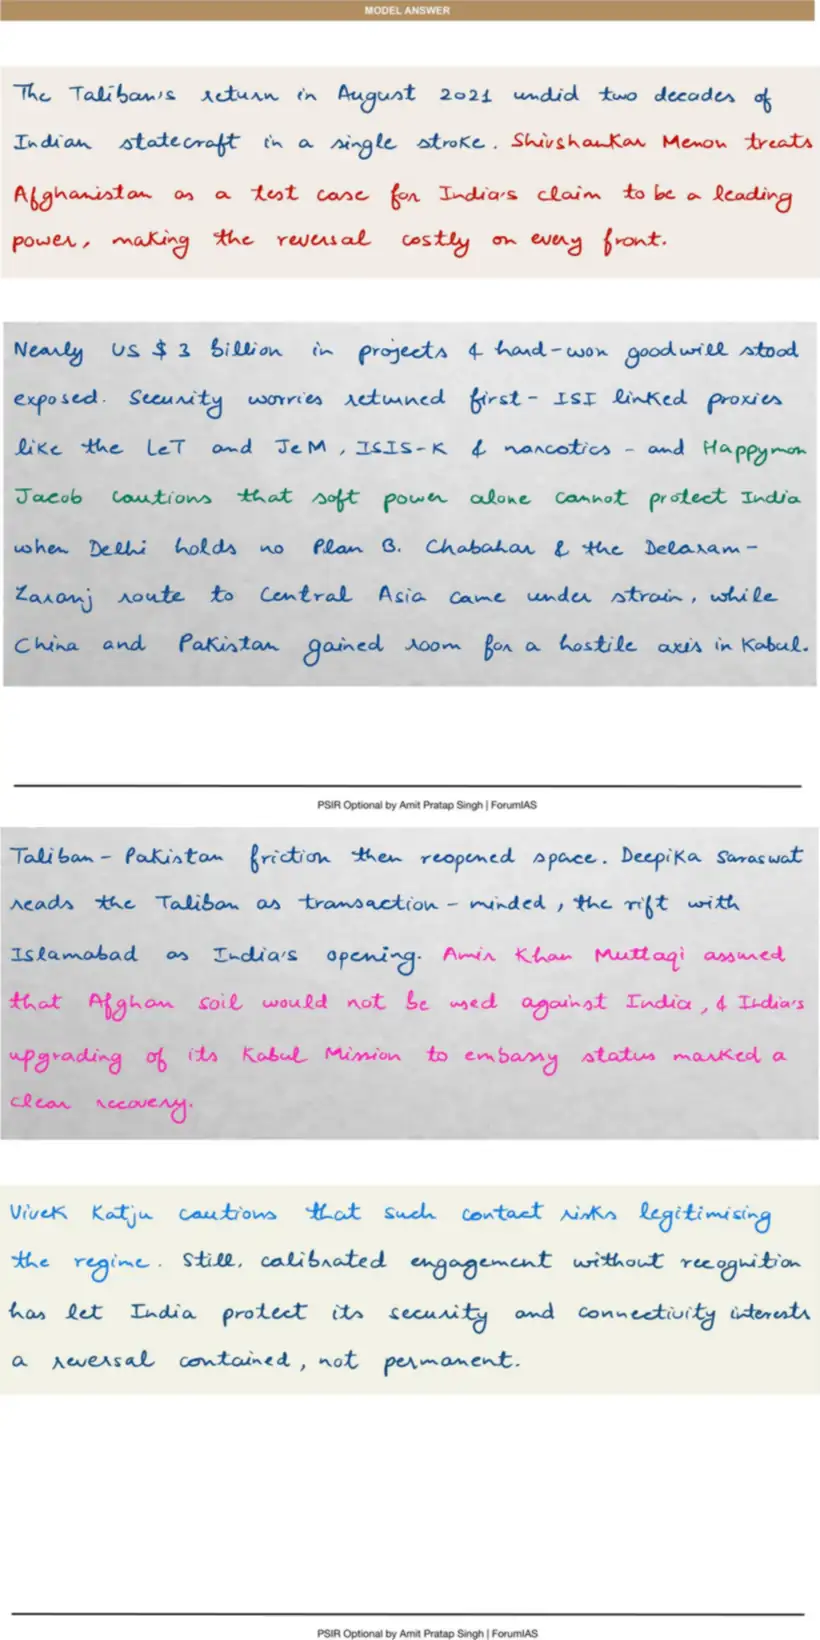 MODEL ANSWER
The Taliban's return in August 2021 undid two decades of
Indian statecraft in a single stroke. Shivshankar Menon treats
Afghanistan as a test case for India's claim to be a leading
power, making the reversal costly on every front.
Nearly US $ 3 billion in projects & hard-won goodwill stood
exposed. Security worries returned first - ISI linked proxies
like the LeT and JeM, ISIS-K & narcotics - and Happymon
Jacob cautions that soft power alone cannot protect India
when Delhi holds no Plan B. Chabahar & the Delaram-
Zaranj route to Central Asia came under strain, while
China and Pakistan gained room for a hostile axis in Kabul.
PSIR Optional by Amit Pratap Singh | ForumIAS
Taliban - Pakistan friction then reopened space. Deepika Saraswat
reads the Taliban as transaction - minded, the rift with
Islamabad as India's opening. Amir Khan Muttaqi assured
that Afghan soil would not be used against India, & India's
upgrading of its Kabul Mission to embassy status marked a
clear recovery.
Vivek Katju cautions that such contact risks legitimising
the regime. Still, calibrated engagement without recognition
has let India protect its security and connectivity interests
a reversal contained, not permanent.
PSIR Optional by Amit Pratap Singh | ForumIAS